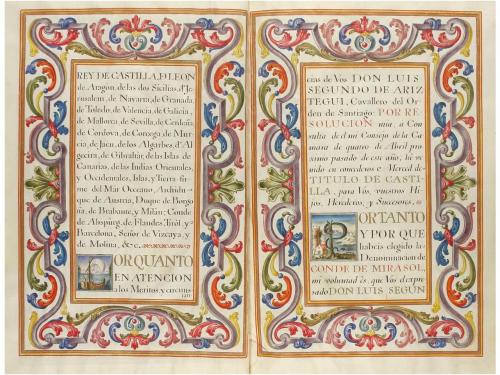 REY DE CASTILLA, D LEON
de Aragon, de las dos Sicilias, d' Je-
rusalem, de Navarra, de Granada,
de Toledo, de Valencia, de Galicia,
de Mallorca, de Sevilla, de Cerdeña
de Cordova, de Corcega, de Mur-
cia, de Jaen, de los Algarbes, d' Al
gecira, de Gibraltar, de las Islas de
Canarias, de las Indias Orientales,
y Occidentales, Islas, y Tierra fir-
me del Mar Occeano, Archidu-
que de Austria, Duque de Borgo-
ña, de Brabante, y Milàn; Conde
de Abspùrg, de Flandes, Tiròl, y
Barcelona, Señor de Vizcaya, y
de Molina, &c.
POR QUANTO
EN ATENCION
a los Meritos, y circuns
tan
cias de Vos DON LUIS
SEGUNDO DE ARIZ
TEGUI, Cavallero del Or-
den de Santiago: POR RE-
SOLUCION mia, a Con-
sulta de el mi Consejo de la Ca-
mara de quatro de Abril pro-
ximo pasado de este año, hè ve-
nido en concederos la Merced de
TITULO DE CASTI-
LLA, para Vòs, vuestros Hi-
jos, Herederos, y Sucesores,
POR TANTO
Y POR QUE
haveis elegido la
Denominacion de
CONDE DE MIRASOL,
mi voluntad es, que Vòs el expre-
sado DON LUIS SEGUN